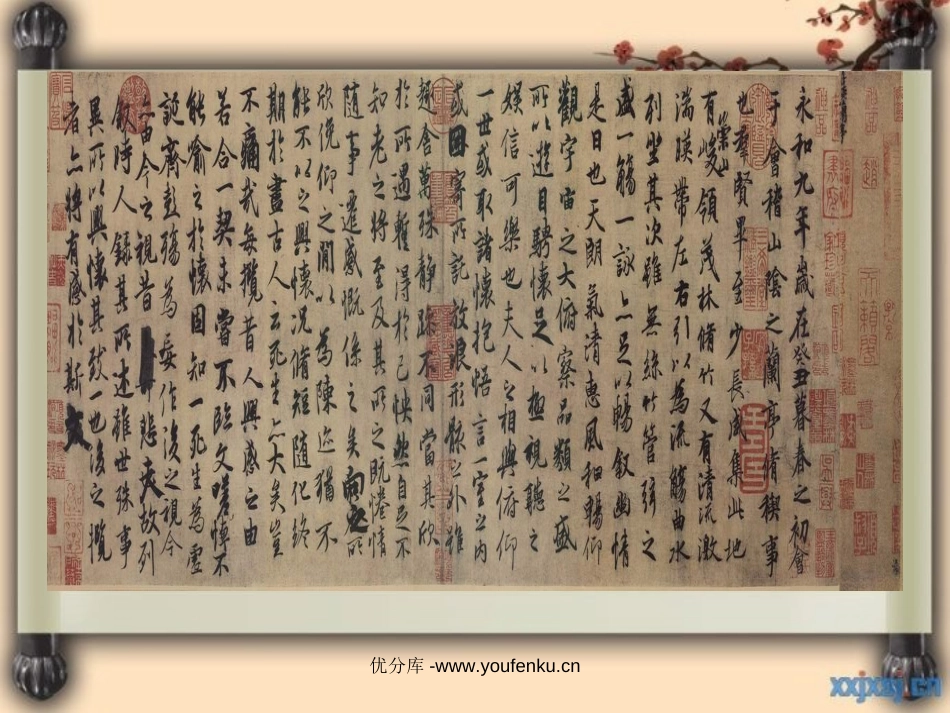 永和九年歲在癸丑暮春之初會
于會稽山陰之蘭亭脩稧事
也羣賢畢至少長咸集此地
有崇山峻領茂林脩竹又有清流激
湍暎帶左右引以為流觴曲水
列坐其次雖無絲竹管弦之
盛一觴一詠亦足以暢敘幽情
是日也天朗氣清惠風和暢仰
觀宇宙之大俯察品類之盛
所以遊目騁懷足以極視聽之
娛信可樂也夫人之相與俯仰
一世或取諸懷抱悟言一室之內
或因寄所託放浪形骸之外雖
趣舍萬殊靜躁不同當其欣
於所遇暫得於己怏然自足不
知老之將至及其所之既惓情
隨事遷感慨係之矣向之所
欣俛仰之閒以為陳迹猶不
能不以之興懷況脩短隨化終
期於盡古人云死生亦大矣豈
不痛哉每攬昔人興感之由
若合一契未嘗不臨文嗟悼不
能喻之於懷固知一死生為虛
誕齊彭殤為妄作後之視今
亦由今之視昔悲夫故列
敘時人錄其所述雖世殊事
異所以興懷其致一也後之攬
者亦將有感於斯文
优分库 -www.youfenku.cn
xxjxsy.cn